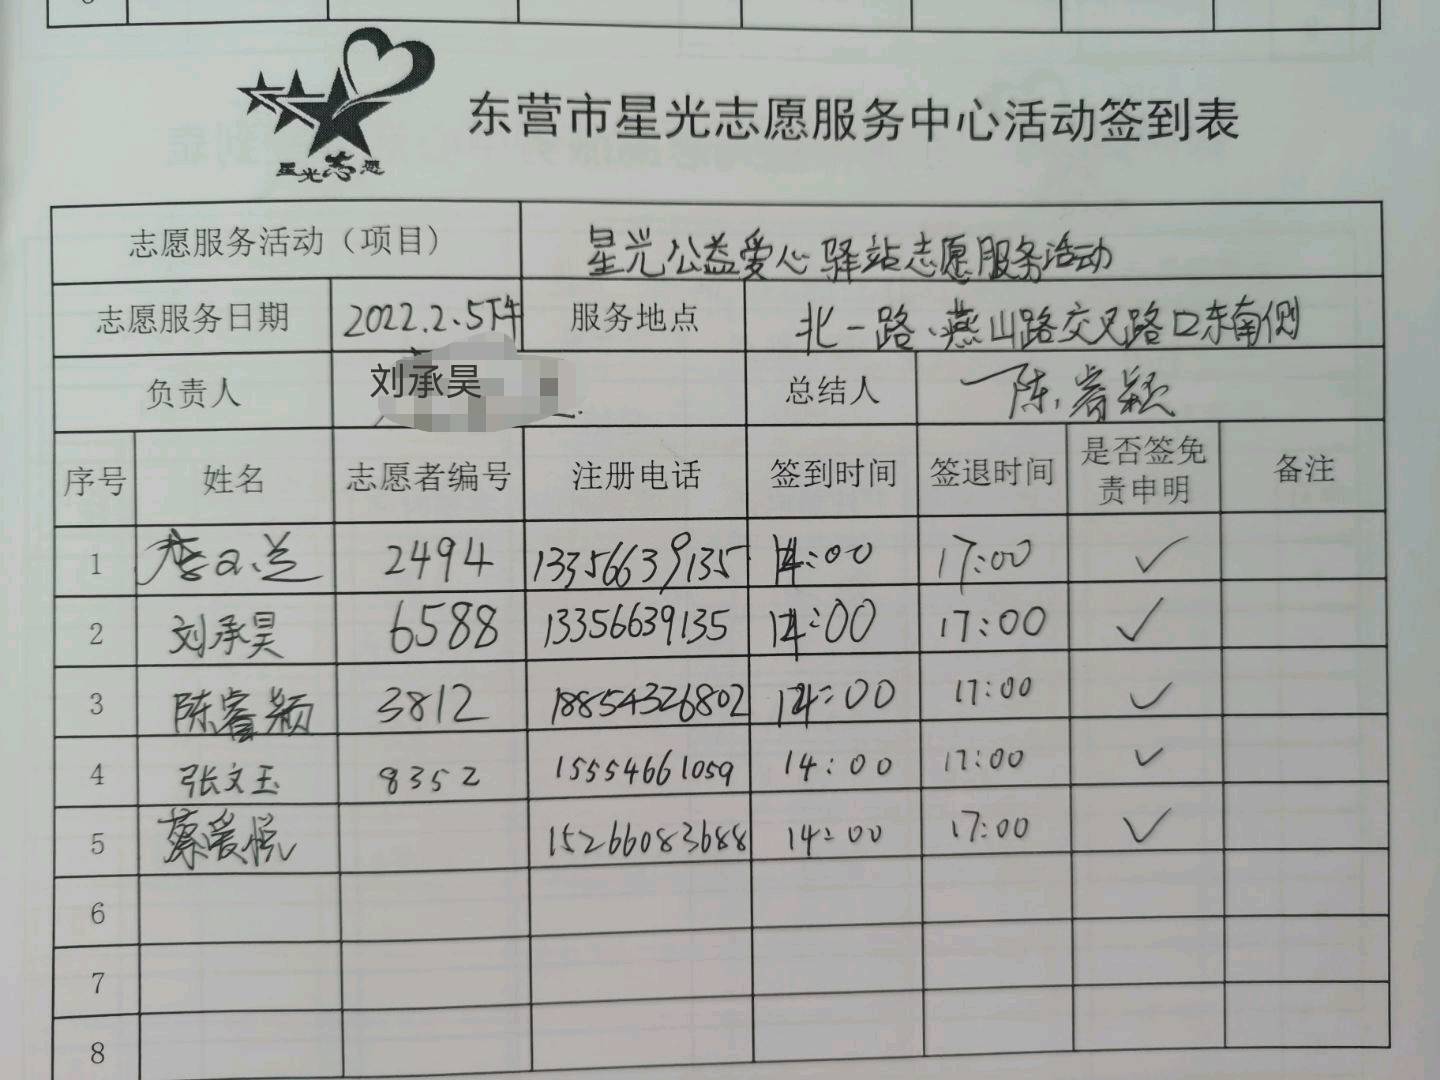 星光志愿
东营市星光志愿服务中心活动签到表
志愿服务活动（项目） 星光公益爱心驿站志愿服务活动
志愿服务日期 2022.2.5下午 服务地点 北一路、燕山路交叉路口东南侧
负责人 刘承昊 总结人 陈睿颖
序号 姓名 志愿者编号 注册电话 签到时间 签退时间 是否签免责申明 备注
1 2494 13356639135 14:00 17:00 ✓
2 刘承昊 6588 13356639135 14:00 17:00 ✓
3 陈睿颖 3812 18854326802 14:00 17:00 ✓
4 张文玉 8352 15554661059 14:00 17:00 ✓
5 蔡爱悦 15266083688 14:00 17:00 ✓
6
7
8